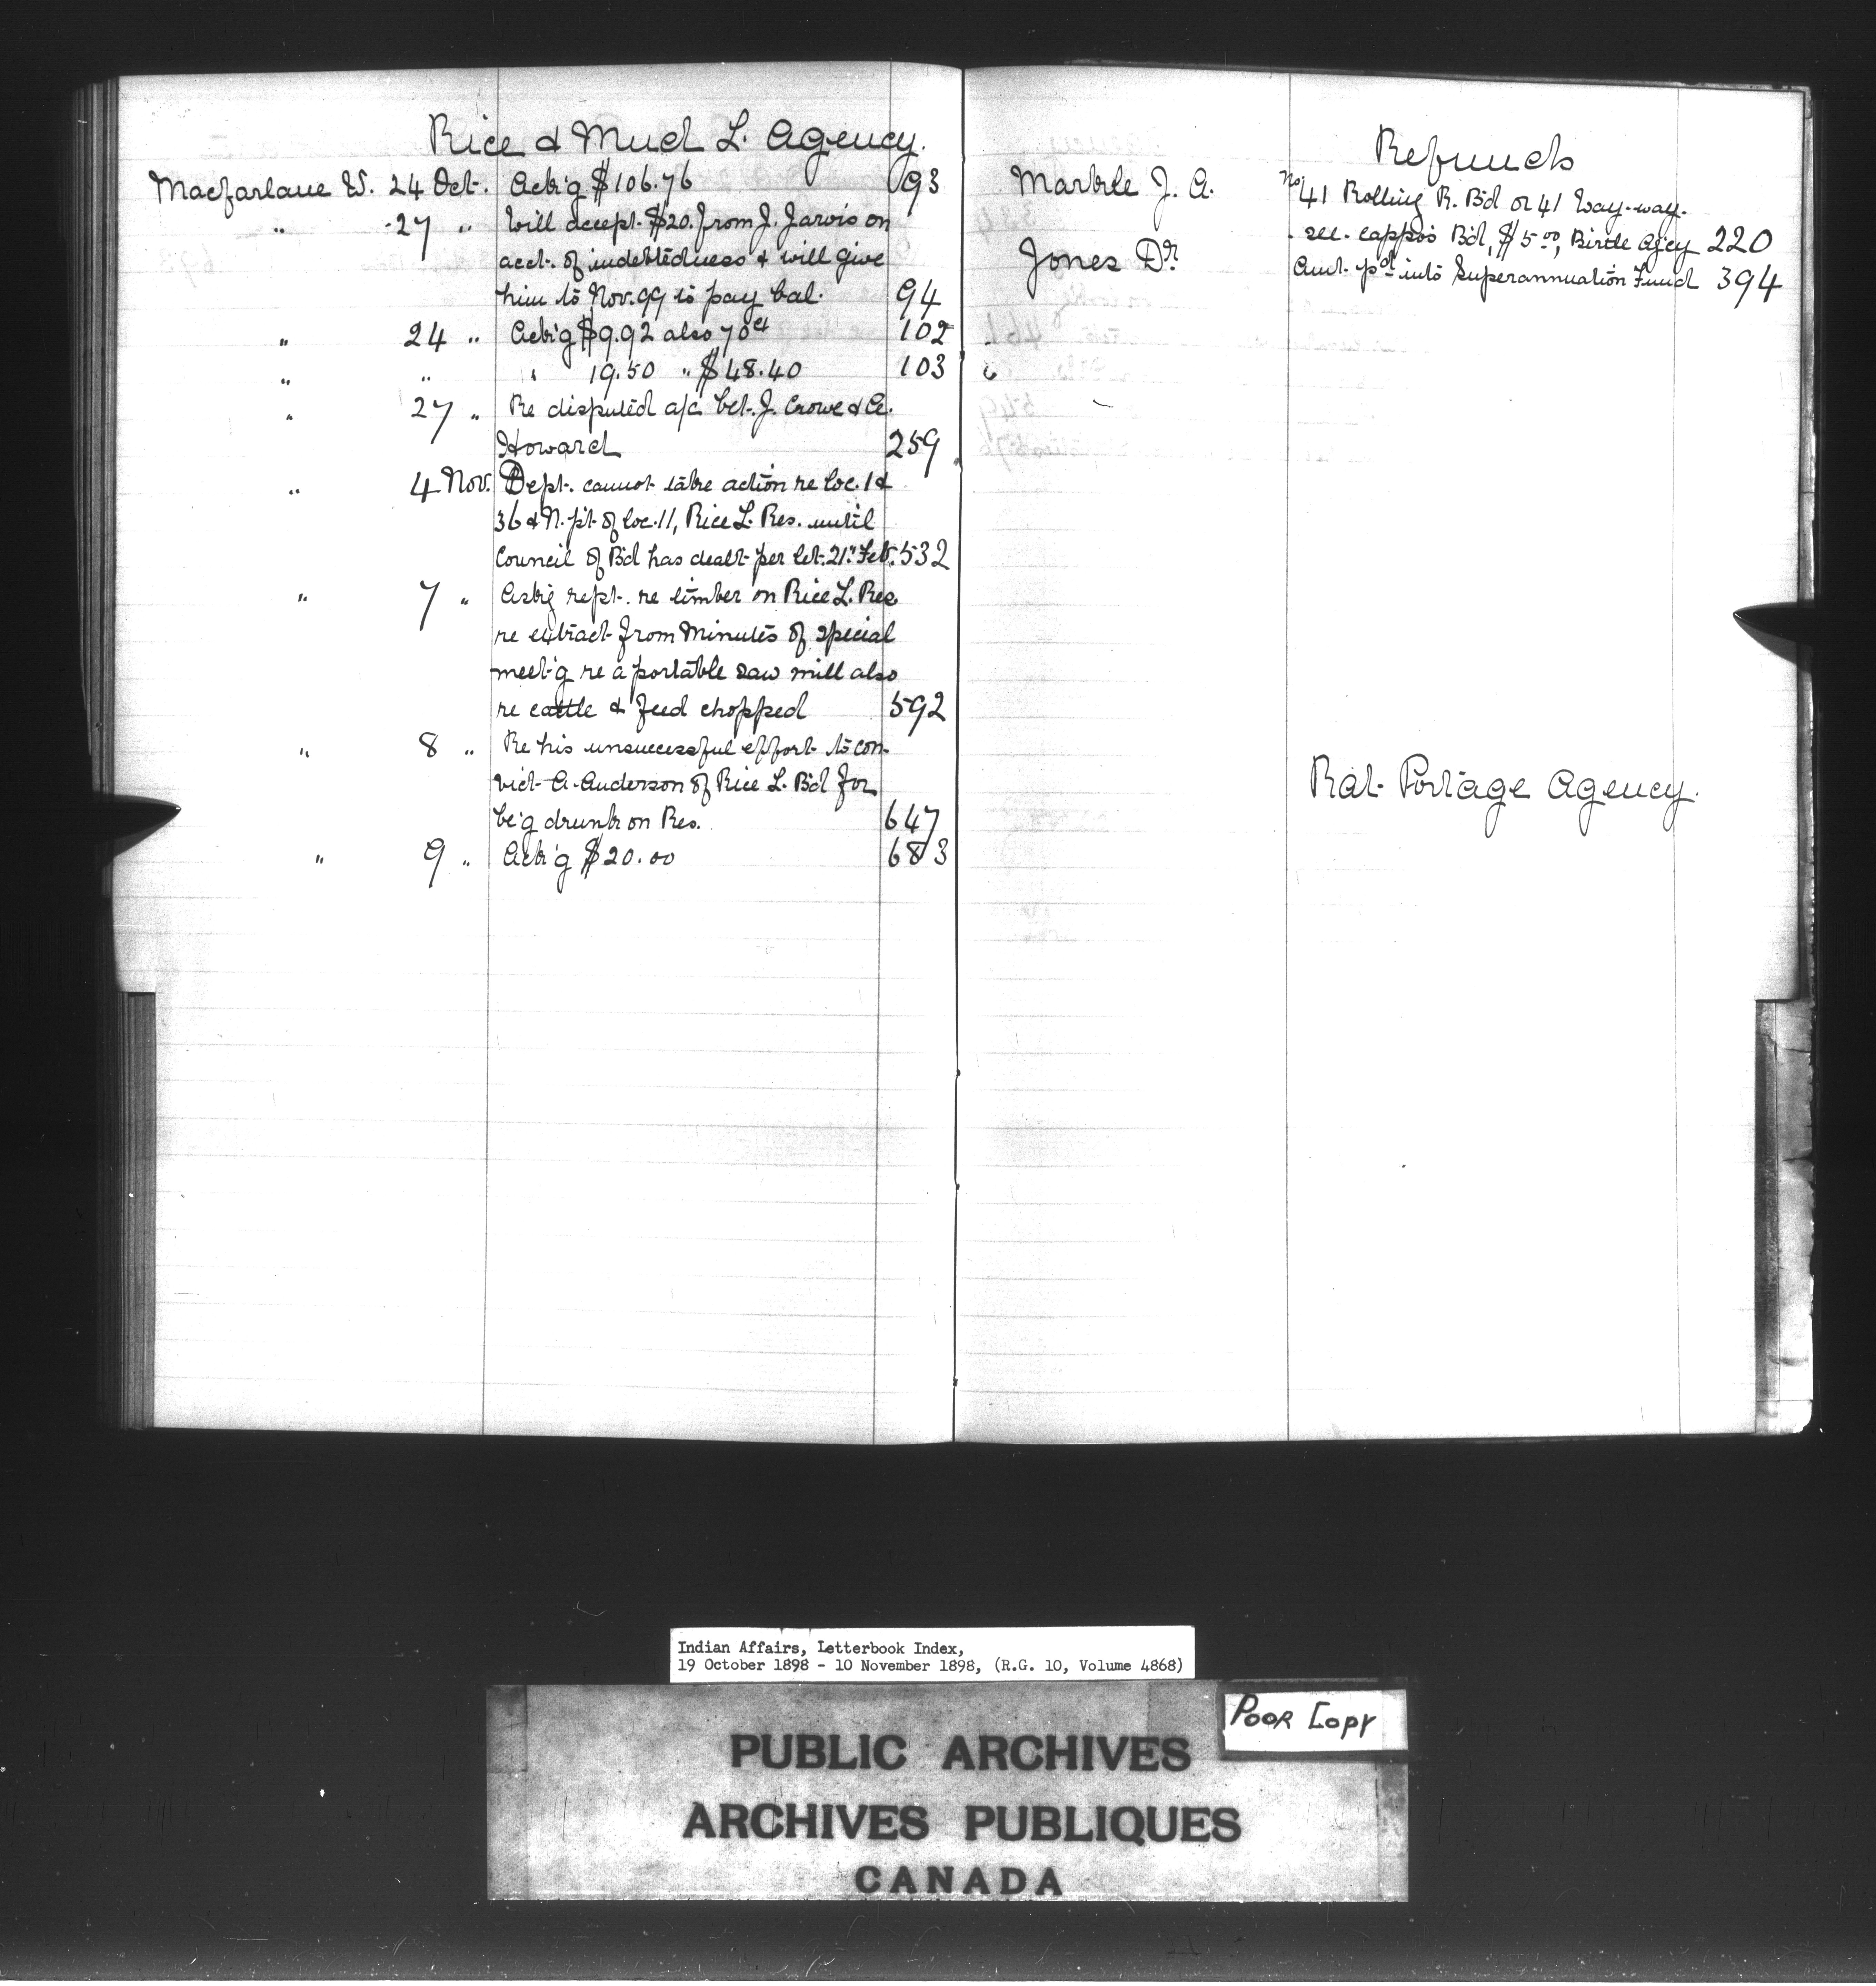 Rice & Mud L. Agency.
Macfarlane W. 24 Oct. Ack'g $106.76 93
" 27 " Will accept $20. from J. Jarvis on
acct. of indebtedness & will give
him to Nov. 99 to pay bal. 94
" 24 " Ack'g $9.92 also 70 ct 102
" " " 19.50 " $48.40 103
" 27 " Re disputed a/c bet. J. Crowe & A.
Howard 259
" 4 Nov. Dept. cannot take action re loc. 1 &
36 & N. pt. of loc. 11, Rice L. Res. until
Council of Bd has dealt per let. 21" Feb. 532
" 7 " Ask'g rept. re timber on Rice L. Res
re extract from Minutes of special
meet'g re a portable saw mill also
re cattle & feed chopped 592
" 8 " Re his unsuccessful effort to con-
vict A. Anderson of Rice L. Bd for
be'g drunk on Res. 647
" 9 " Ack'g $20.00 683
Refunds
Markle J. A. No 41 Rolling R. Bd or 41 Way-way-
see-cappo's Bd, $5.00, Birtle Ag'cy 220
Jones Dr. Amt. pd into Superannuation Fund 394
Rat Portage Agency.
Indian Affairs, Letterbook Index,
19 October 1898 - 10 November 1898, (R.G. 10, Volume 4868)
Poor Copy
PUBLIC ARCHIVES
ARCHIVES PUBLIQUES
CANADA